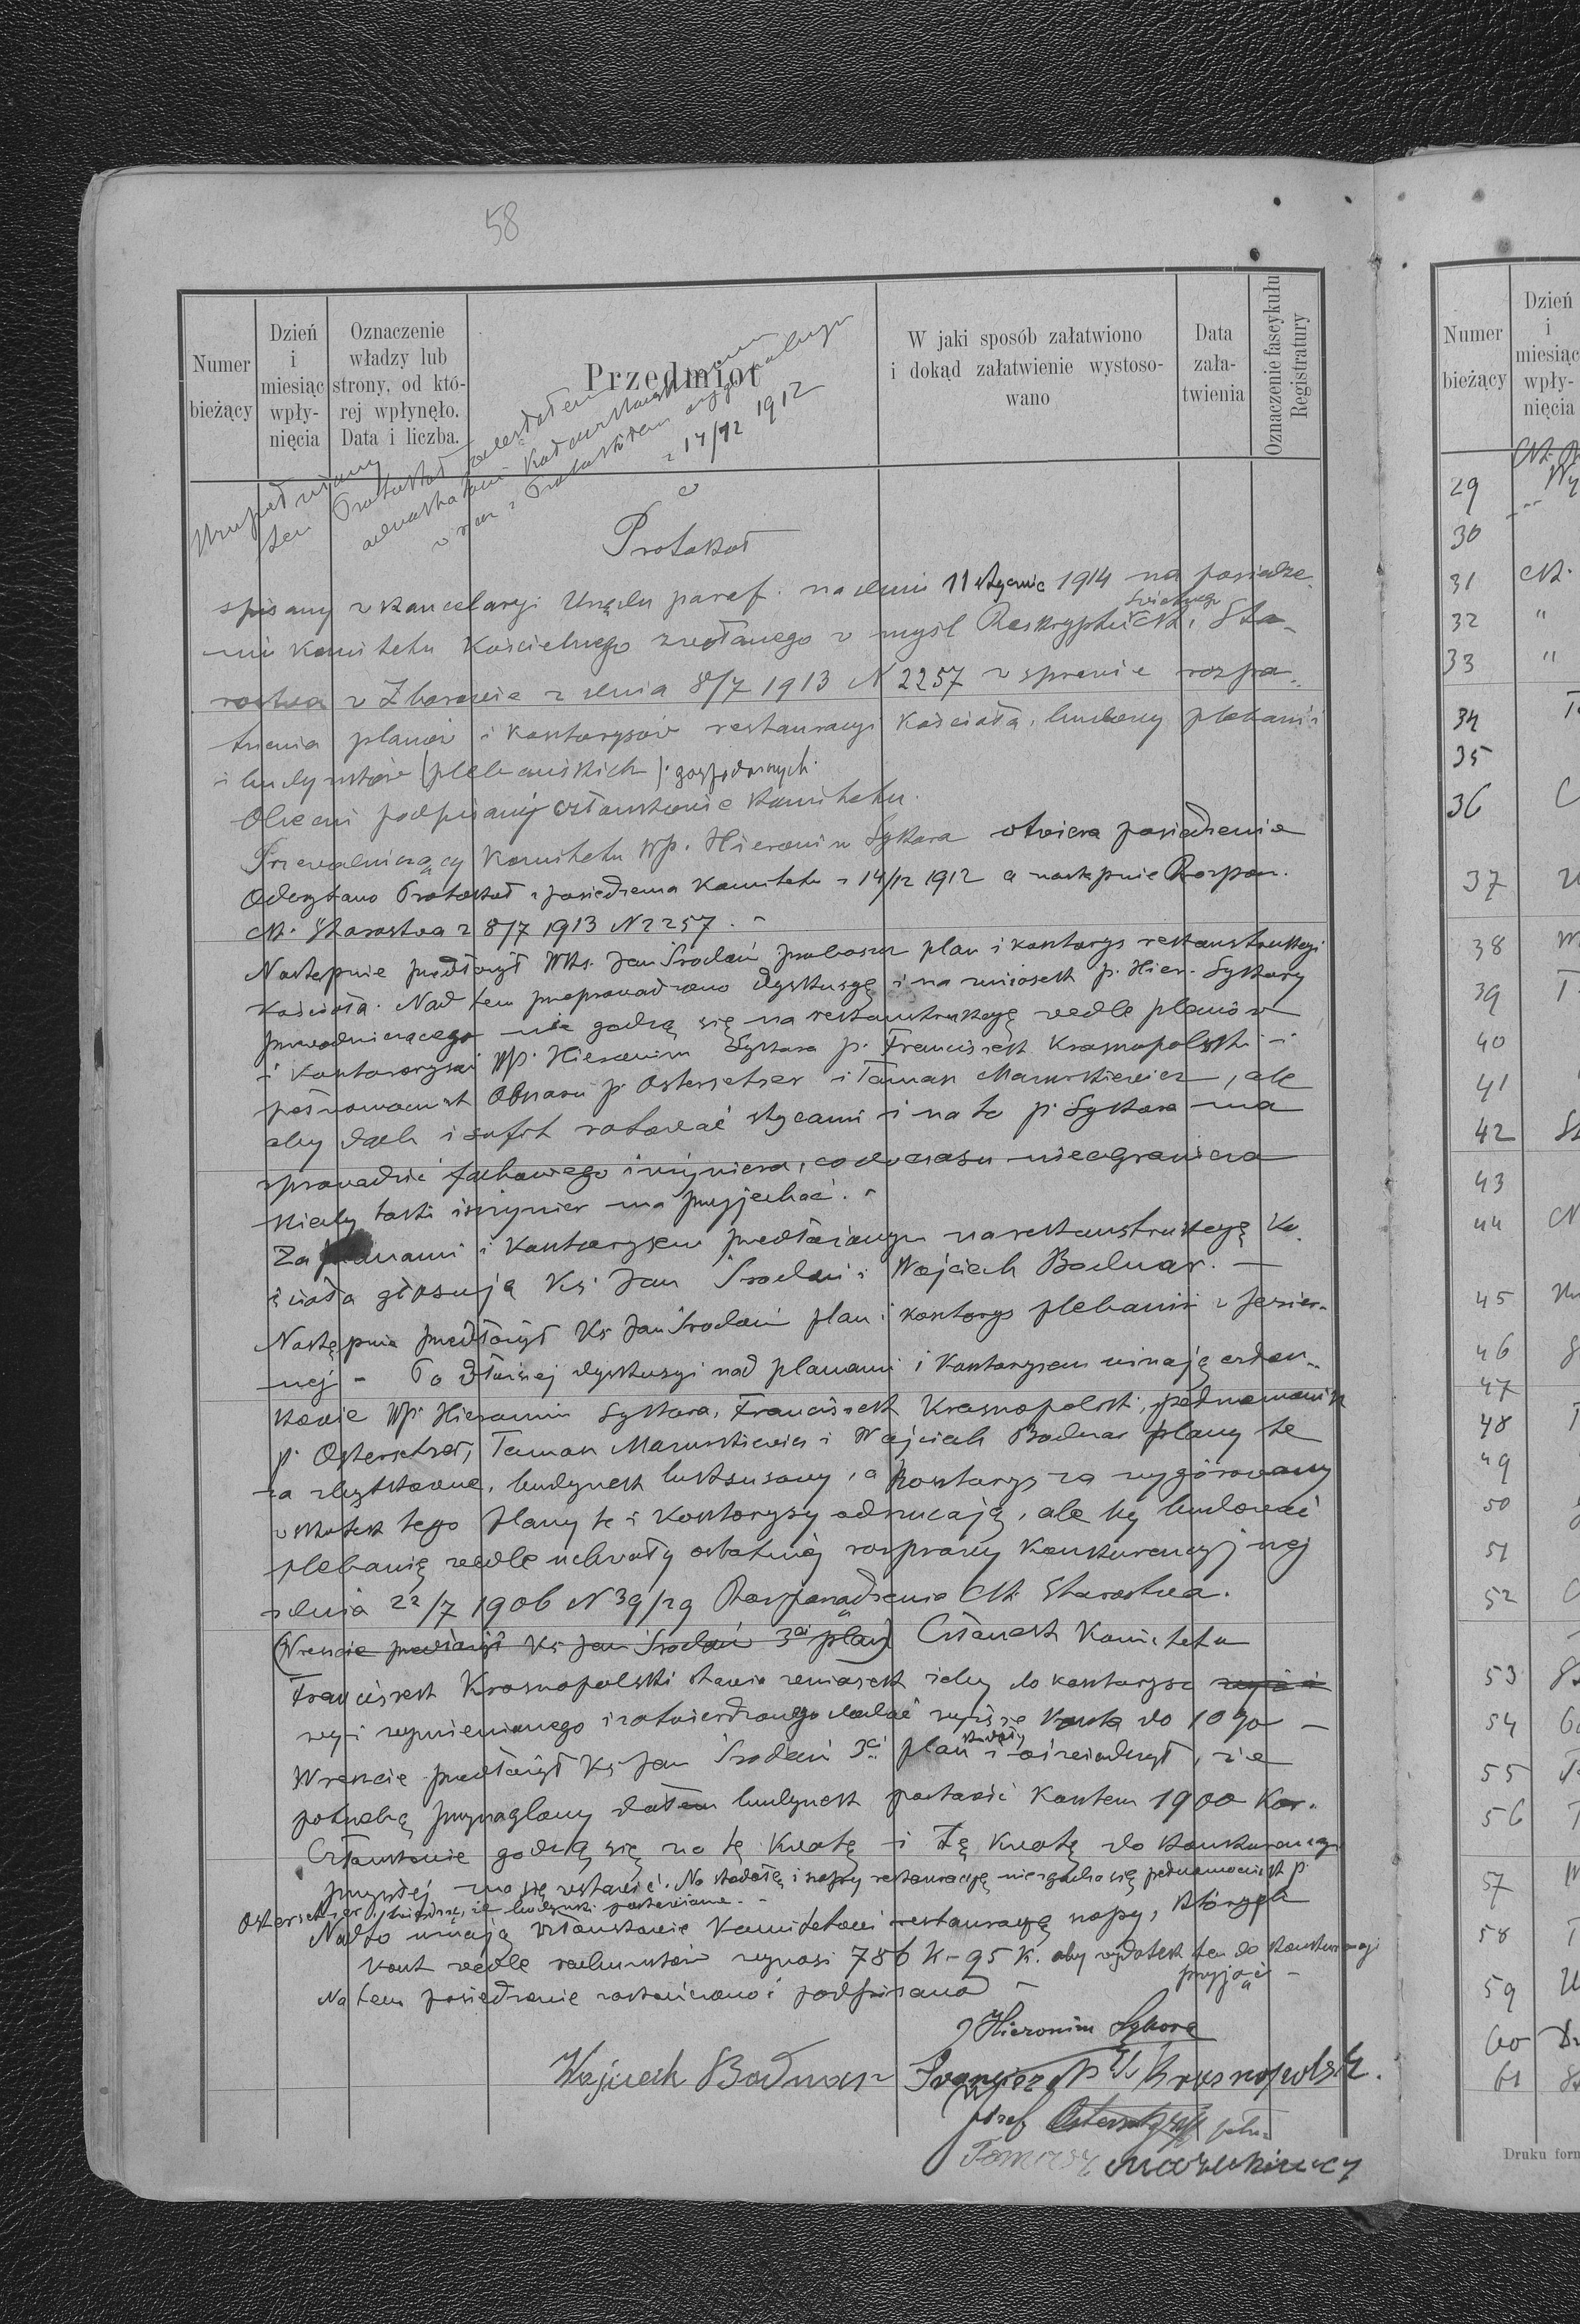 58
Numer bieżący
Dzień i miesiąc wpły- nięcia
Oznaczenie władzy lub strony, od któ- rej wpłynęło. Data i liczba.
Przedmiot
W jaki sposób załatwiono i dokąd załatwienie wystoso- wano
Data zała- twienia
Oznaczenie fascykułu Registratury
ten Protokół
14/12 1912
Protokół
spisany w kancelaryi Urzędu paraf. na dniu 11 stycznia 1914 na posiedze-
niu komitetu kościelnego zwołanego w myśl Reskryptu Świetnego CK. Sta-
rostwa w Zborowie z dnia 8/7 1913 N 2257 w sprawie rozpa-
trzenia planów i kosztorysów restauracyi kościoła, budowy plebanii
i budynków plebańskich gospodarczych.
Obecni podpisani członkowie komitetu.
Przewodniczący Komitetu Wp. Hieronim Sykora otwiera posiedzenie
Odczytano Protokół z posiedzenia Komitetu z 14/12 1912 a następnie Rozpor.
CK. Starostwa z 8/7 1913 N 2257. -
Następnie przedłożył Wks. Jan Środoń proboszcz plan i kosztorys rekonstrukcyi
kościoła. Nad tem przeprowadzono dyskusyę i na wniosek p. Hier. Sykory
przewodniczącego nie godzą się na rekonstrukcyę wedle planów
i kosztorysów Wp. Hieronim Sykora p. Franciszek Krasnopolski i
pełnomocnik Obszaru p. Ostersetzer i Tomasz Mazurkiewicz, ale
aby dach i sufit ratować stycami i na to p. Sykora ma
sprowadzić fachowego inżyniera, co do czasu nieogranicza
kiedy taki inżynier ma przyjechać. -
Za planami i kosztorysem przedłożonym na rekonstrukcyę ko-
ścioła głosują Ks. Jan Środoń i Wojciech Bodnar. -
Następnie przedłożył Ks Jan Środoń plan i kosztorys plebanii w Jezier-
nej - Po dłuższej dyskusyi nad planami i kosztorysem uznają człon-
kowie Wp. Hieronim Sykora, Franciszek Krasnopolski, pełnomocnik
p. Ostersetzer, Tomasz Mazurkiewicz i Wojciech Bodnar plany te
za zbytkowne, budynek luksusowy, a kosztorys za wygórowany
wskutek tego plany te i kosztorysy odrzucają, ale by budować
plebanię wedle uchwały ostatniej rozprawy konkurencyjnej
z dnia 22/7 1906 N 39/29 Rozporządzenia CK. Starostwa.
(Wreszcie przedłożył Ks Jan Środoń 3ci plan) Członek Komitetu
Franciszek Krasnopolski stawia wniosek żeby do kosztorysu
wyż wymienionego i zatwierdzonego dodać wyższe koszta do 10% -
Wreszcie przedłożył Ks Jan Środoń 3ci plan stodoły i oświadczył, że
potrzebą przynaglony dałem budynek postawić kosztem 1900 Kor.
Członkowie godzą się na tę kwotę i tę kwotę do konkurencyi
przyszłej ma się wstawić. Na stodołę i szopy restauracyę niezgadza się pełnomocnik p.
Ostersetzer, że budynki postawione. -
Nadto uznają członkowie Komitetowi restauracyę szopy, których
koszt wedle rachunków wynosi 786 K - 95 h. aby wydatek ten do konkurencyi
przyjąć -
Na tem posiedzenie zakończono i podpisano -
Hieronim Sykora
Wojciech Bodnar Franciszek Krasnopolski.
Józef Ostersetzer pełn.
Tomasz Mazurkiewicz
Numer bieżący
Dzień i miesiąc wpły- nięcia
29
30
31
32
33
34
35
36
37
38
39
40
41
42
43
44
45
46
47
48
49
50
51
52
53
54
55
56
57
58
59
60
61
Druku form